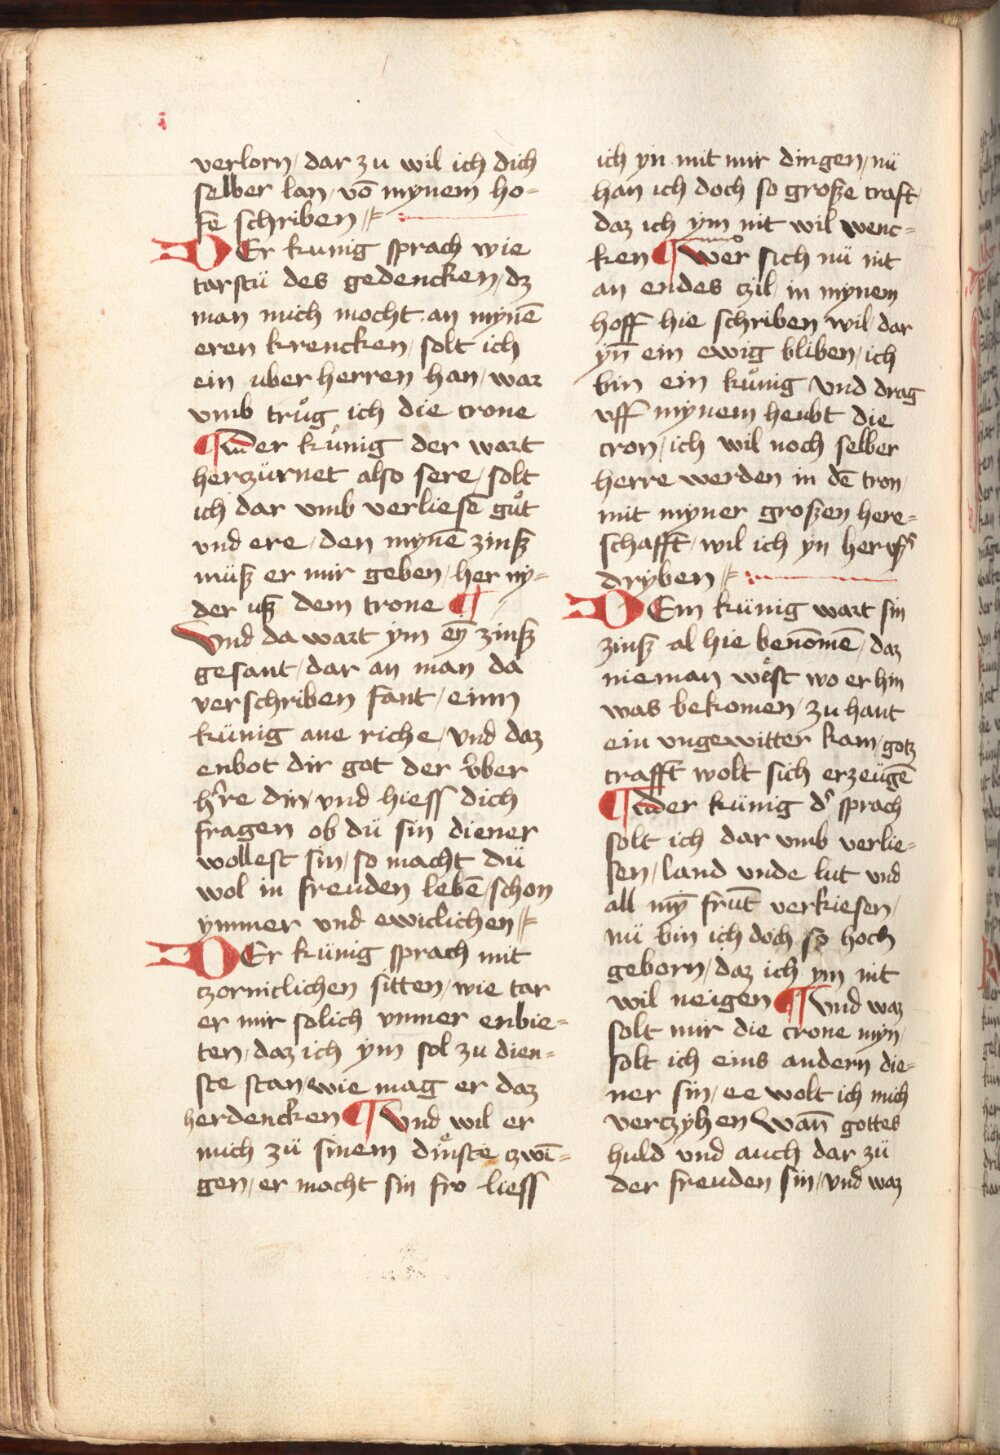 verlorn / dar zu wil ich dich
selber lan / vō mynem ho=
fe schriben /
DEr kunig sprach wie
tarstü des gedencken / dz
man mich mocht an mynē
eren krencken / solt ich
ein uber herren han / war
vmb trůg ich die crone
¶ Der kůnig der wart
herczürnet also sere / solt
ich dar vmb verliesē gůt
vnd ere / den mynē zinß
müß er mir geben / her ny=
der uß dem trone ¶
Vnd da wart ym eȳ zinß
gesant / dar an man da
verschriben fant / einn
künig ane riche / vnd daz
enbot dir got der v̊ber
h're din / vnd hiess dich
fragen ob dü sin diener
wollest sin / so macht dü
wol in freuden lebē / schon
ymmer vnd ewiclichen /
DEr künig sprach mit
czorniclichen sitten / wie tar
er mir solich ymmer enbie=
ten / daz ich ym sol zu dien=
ste stan / wie mag er daz
herdencken ¶ Vnd wil er
mich zü sinem dinste czwī=
gen / er macht sin fro liess
ich yn mit mir dingen / nü
han ich doch so große craft /
daz ich ym nit wil wenc=
ken ¶ wer sich nü nit
an endes czil in mynem
hoff hie schriben wil dar
yn̄ ein ewig bliben / ich
bin ein kůnig / vnd drag
vff mynem heubt die
cron / ich wil noch selber
herre werden in dē tron /
mit myner großen here=
schafft / wil ich yn heruß
dryben /
DEm künig wart sin
zinß al hie benōmē / daz
nieman west wo er hin
was bekomen / zu hant
ein vngewitter kam / gotz
crafft wolt sich erzeügē
¶ Der künig d' sprach
solt ich dar vmb verlie=
sen / land vnde lut vnd
all mȳ frūt verkiesen /
nü bin ich doch so hoch
geborn / daz ich ym nit
wil neigen ¶ Vnd waz
solt mir die crone myn /
solt ich eins andern die=
ner sin / ee wolt ich mich
verczyhen / wan̄ gottes
huld vnd auch dar zü
der freuden sin / vnd waz